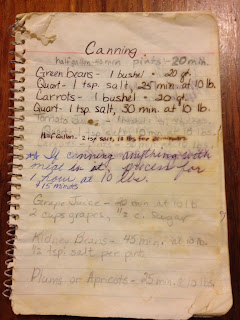 Canning
half gallon min pints - 20 min.
Green beans - 1 bushel = 20 qt.
Quart - 1 tsp. salt, 25 min. at 10 lb.
Carrots - 1 bushel - 20 qt.
Quart - 1 tsp. salt, 30 min. at 10 lb.
Half Gallon - 2 tsp salt, 10 lbs for
If canning anything with
meat in it, process for
1 hour at 10 lbs.
+ 15 minutes
Grape Juice - 20 min at 10 lb
2 cups grapes, 1/2 c. sugar
Kidney Beans - 45 min. at 10 lb.
1/2 tspl salt per pnt
Plums or Apricots - 25 min @ 10 lb.